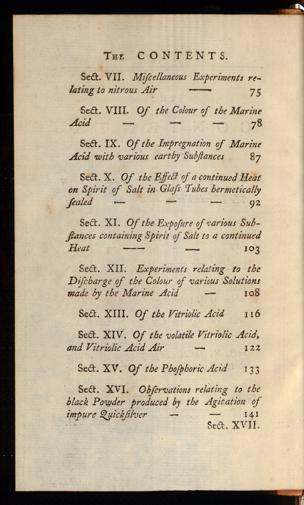 THE CONTENTS.
Sect. VII. Miſcellaneous Experiments re-
lating to nitrous Air — 75
Sect. VIII. Of the Colour of the Marine
Acid — — — 78
Sect. IX. Of the Impregnation of Marine
Acid with various earthy Subſtances 87
Sect. X. Of the Effect of a continued Heat
on Spirit of Salt in Glaſs Tubes hermetically
ſealed — — — 92
Sect. XI. Of the Expoſure of various Sub-
ſtances containing Spirit of Salt to a continued
Heat — — 103
Sect. XII. Experiments relating to the
Diſcharge of the Colour of various Solutions
made by the Marine Acid — 108
Sect. XIII. Of the Vitriolic Acid 116
Sect. XIV. Of the volatile Vitriolic Acid,
and Vitriolic Acid Air — 122
Sect. XV. Of the Phoſphoric Acid 133
Sect. XVI. Obſervations relating to the
black Powder produced by the Agitation of
impure Quickſilver — — 141
Sect. XVII.